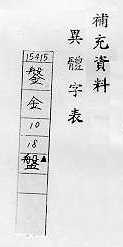 補充資料
異體字表
15415
鎜
金
10
18
盤▲